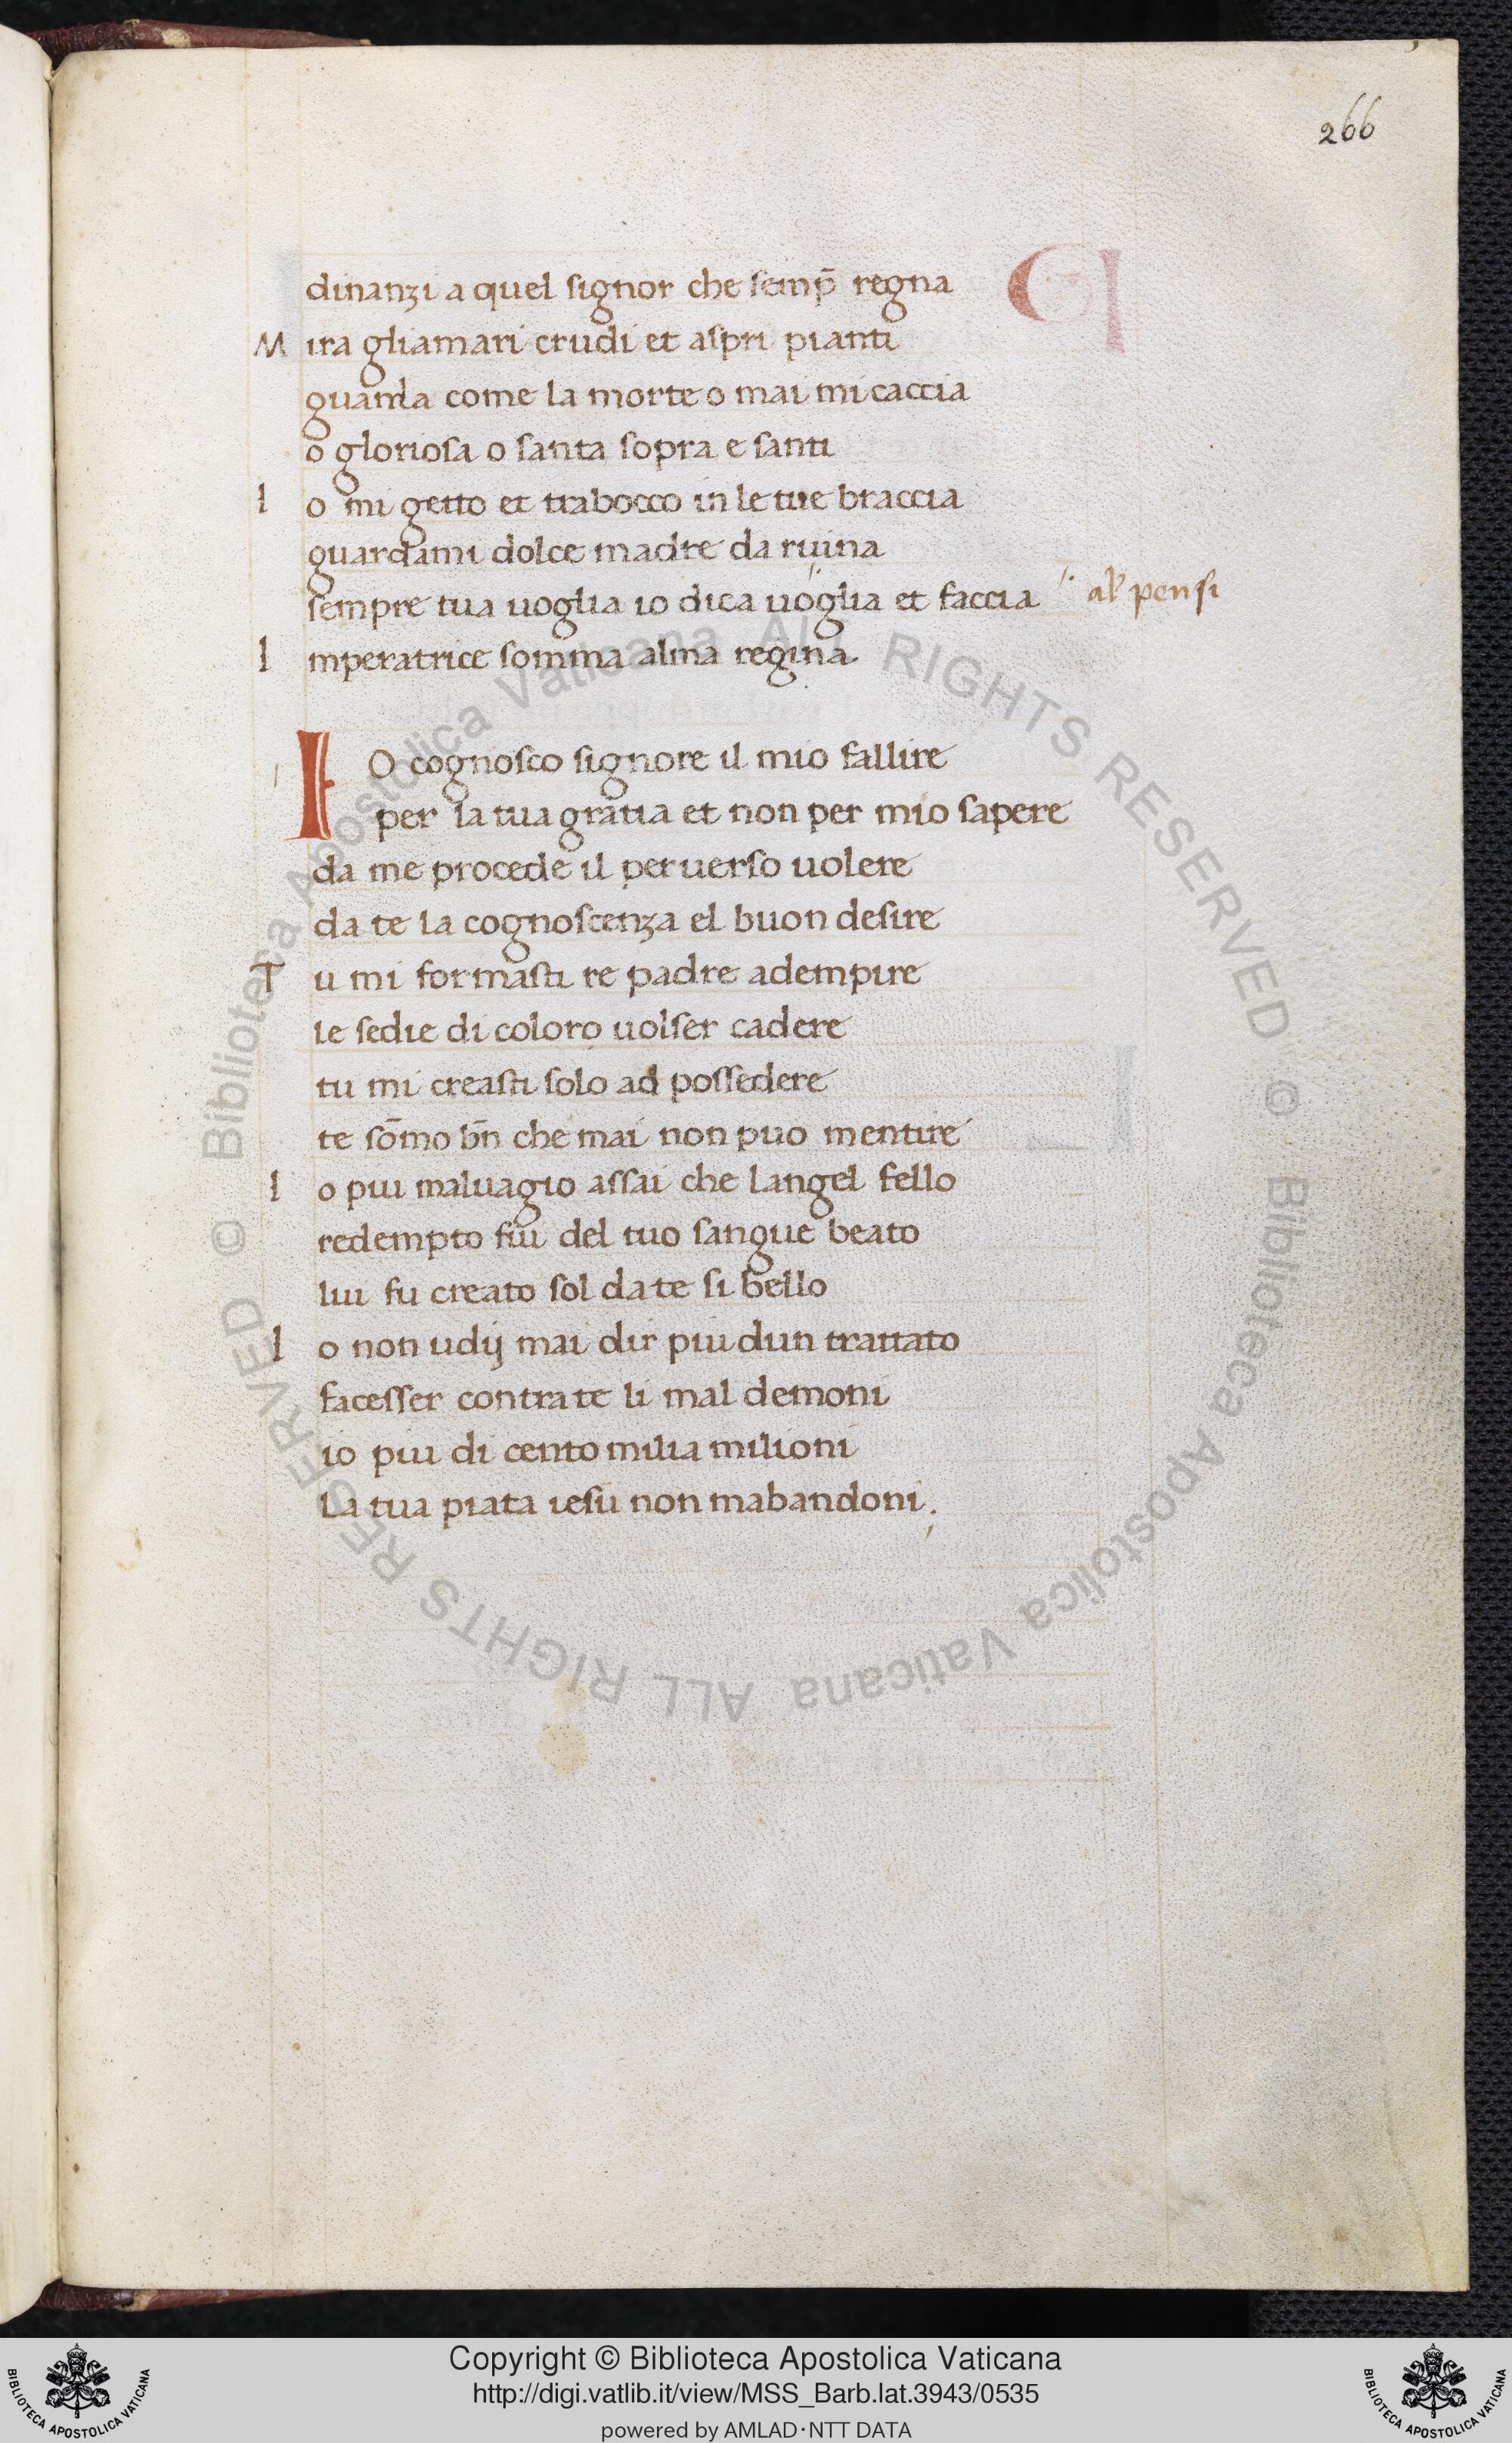 266
dinanzi a quel signor che semp̄ regna
M ira gliamari crudi et aspri pianti
guarda come la morte o mai mi caccia
o gloriosa o santa sopra e santi
I o mi getto et trabocco in le tue braccia
guardami dolce madre da ruina
sempre tua uoglia io dica uoglia et faccia al' pensi
I mperatrice somma alma regina
IO cognosco signore il mio fallire
per la tua gratia et non per mio sapere
da me procede il peruerso uolere
da te la cognoscenza el buon desire
T u mi formasti re padre adempire
le sedie di coloro uolser cadere
tu mi creasti solo ad possedere
te sōmo bn̄ che mai non puo mentire
I o piu maluagio assai che langel fello
redempto fui del tuo sangue beato
lui fu creato sol da te si bello
I o non udij mai dir piu dun trattato
facesser contra te li mal demoni
io piu di cento milia milioni
La tua piata iesu non mabandoni.
© Biblioteca Apostolica Vaticana ALL RIGHTS RESERVED © Biblioteca Apostolica Vaticana ALL RIGHTS RESERVED
Copyright © Biblioteca Apostolica Vaticana
http://digi.vatlib.it/view/MSS_Barb.lat.3943/0535
powered by AMLAD·NTT DATA
BIBLIOTECA APOSTOLICA VATICANA
BIBLIOTECA APOSTOLICA VATICANA